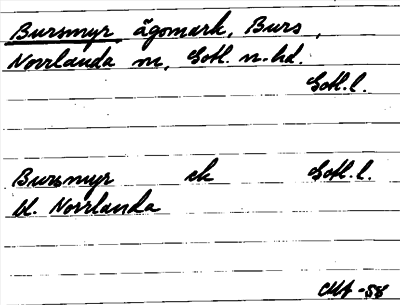 Bursmyr ägomark, Burs,
Norrlanda sn, Gotl. n. hd.
Gotl. l.
Bursmyr ek Gotl. l.
bl. Norrlanda
-58